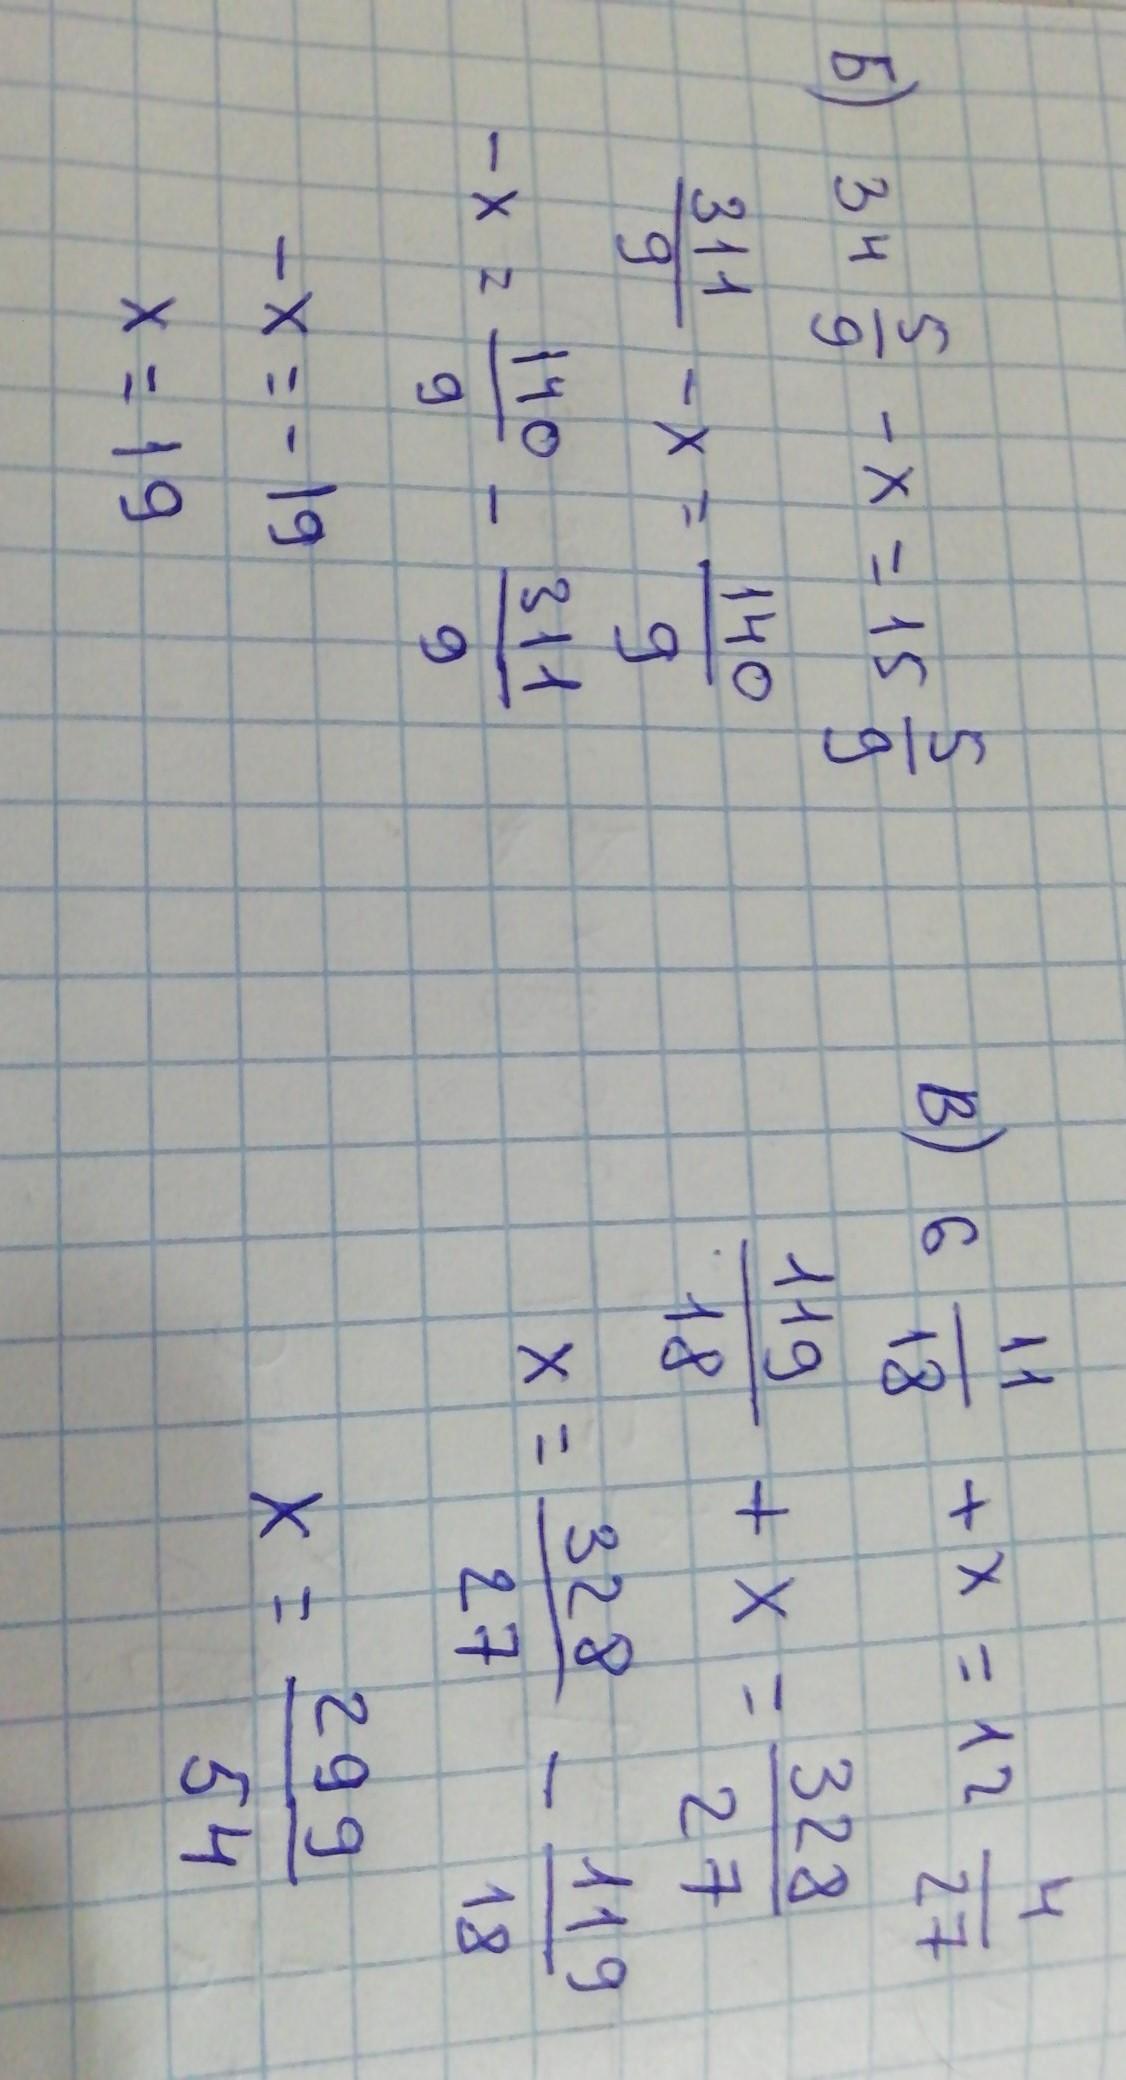 Б) 34 5/9 - x = 15 5/9
311/9 - x = 140/9
-x = 140/9 - 311/9
-x = -19
x = 19
В) 6 11/18 + x = 12 4/27
119/18 + x = 328/27
x = 328/27 - 119/18
x = 299/54